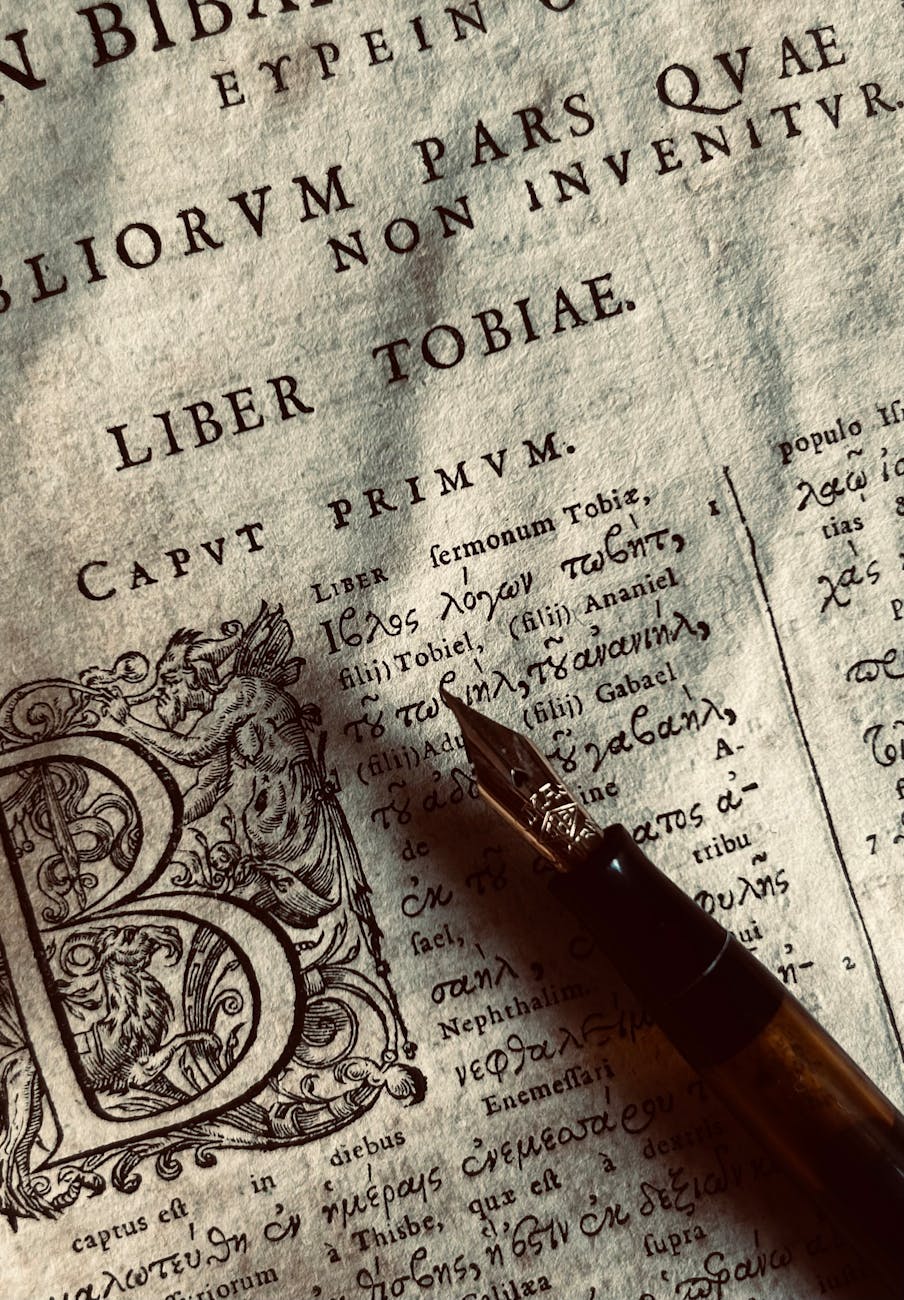 N BIBA
ΕΥΡΕΙΝ
BLIORVM PARS QVAE
NON INVENITVR.
LIBER TOBIAE.
CAPVT PRIMVM.
LIBER ſermonum Tobiæ,
Ιβλος λόγων τωβὴτ, 1
filij) Tobiel, (filij) Ananiel
τȣ͂ τωβιὴλ, τȣ͂ ἀνανιὴλ,
(filij) Adu (filij) Gabael
τȣ͂ γαβαὴλ,
de ine A-
ἐκ τȣ͂ ατος ἀ-
tribu
φυλῆς
ſael, ui
σαὴλ, 2
Nephthalim.
νεφθαλεὶμ
Enemeſſari
B
captus eſt in diebus
μαλωτεύθη ἐν ἡμέραις ἐνεμεσσάρȣ
à Thisbe, quæ eſt à dextris
θίσβης, ἥ ἐςιν ἐκ δεξιῶν
ſſyriorum Galilæa ſupra
populo Iſr
λαῷ ἰσ
tias &
χὰς
7